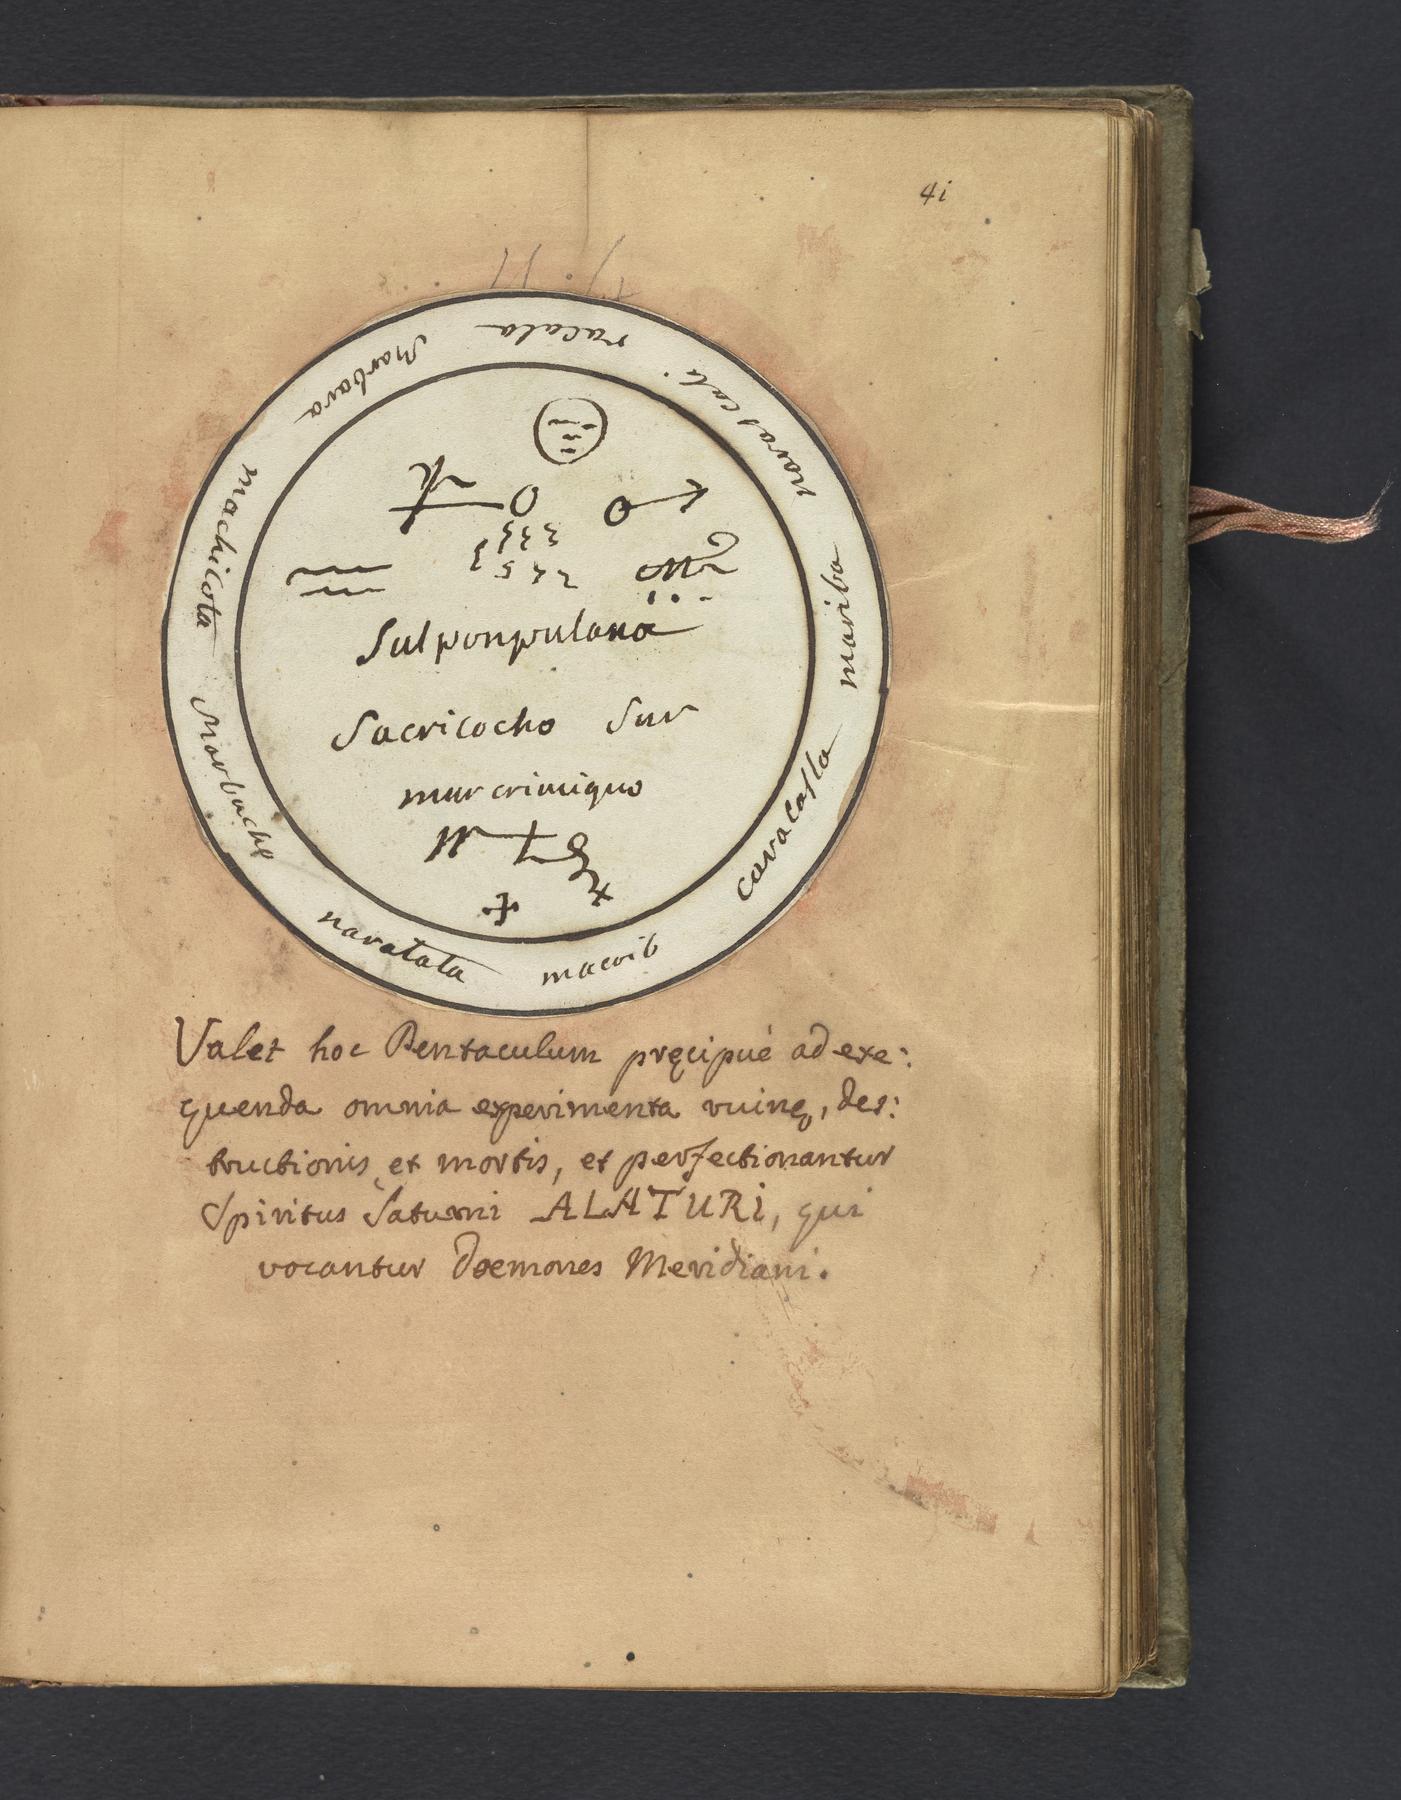 41
racala
narascali
mariba
cavacasla
macrib
naratata
Marbache
machicota
Marbara
Sulponpulana
Sacricocho Sur
murcrimiquo
Valet hoc Pentaculum pręcipuè ad exe:
quenda omnia experimenta ruinę, des:
tructionis et mortis, et perfectionantur
Spiritus Saturni ALATURI, qui
vocantur Dæmones Meridiani.